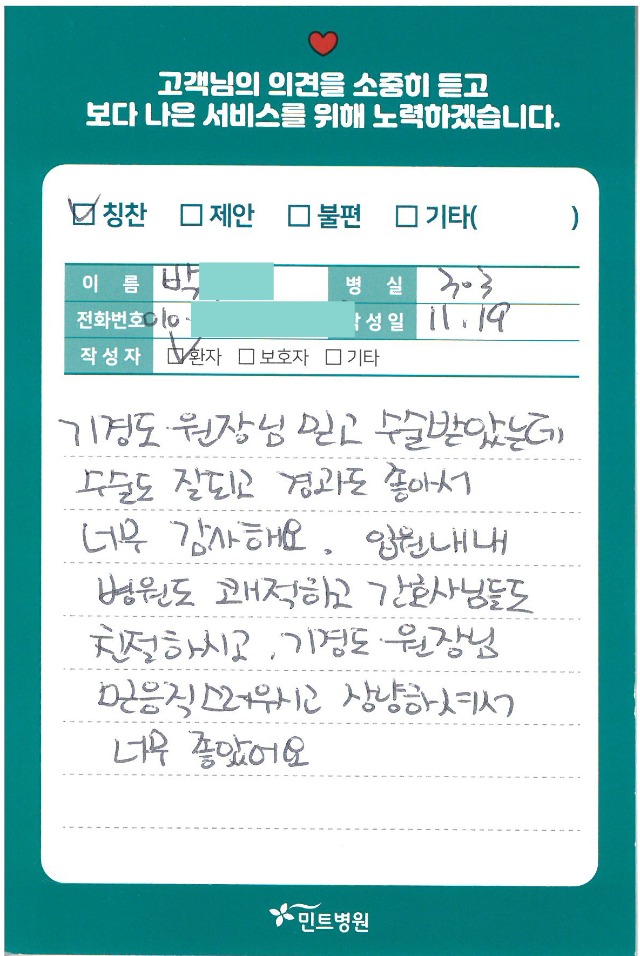 고객님의 의견을 소중히 듣고
보다 나은 서비스를 위해 노력하겠습니다.
칭찬 제안 불편 기타( )
이 름 백 병 실 303
전화번호 010- 작성일 11.19
작성자 환자 보호자 기타
기경도 원장님 믿고 수술받았는데
수술도 잘되고 경과도 좋아서
너무 감사해요. 입원내내
병원도 쾌적하고 간호사님들도
친절하시고, 기경도 원장님
믿음직스러우시고 상냥하셔서
너무 좋았어요
민트병원